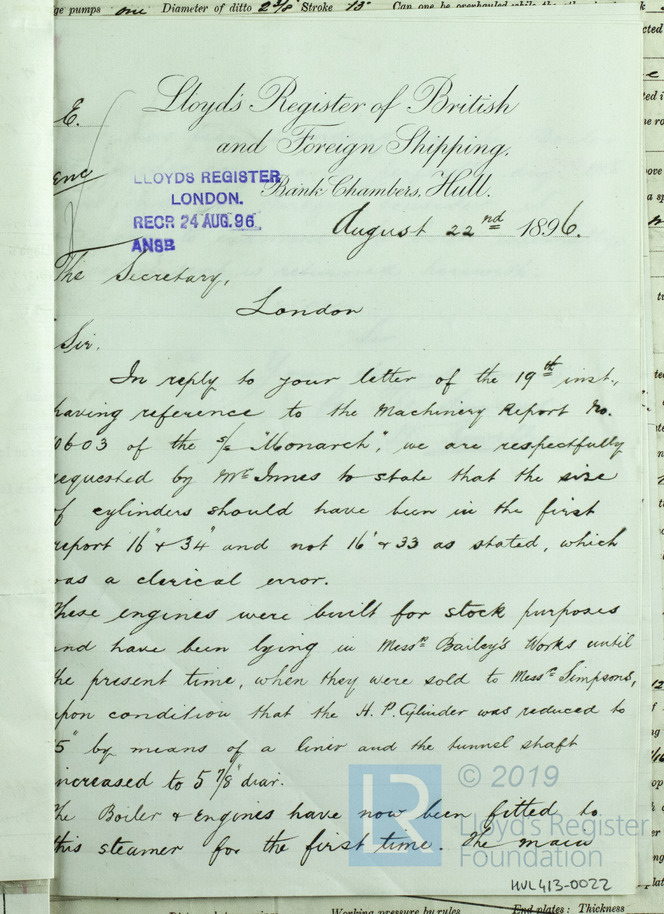 ge pumps one Diameter of ditto 2 3/8 Stroke 13"
E.
Lloyd's Register of British
and Foreign Shipping,
Bank Chambers, Hull.
LLOYDS REGISTER
LONDON.
RECR 24 AUG. 96
ANSD
August 22nd 1896.
The Secretary,
London
Sir.
In reply to your letter of the 19th inst.,
having reference to the Machinery Report No.
0603 of the s/s "Monarch", we are respectfully
requested by Mr Innes to state that the size
of cylinders should have been in the first
report 16" & 34" and not 16" & 33 as stated, which
was a clerical error.
These engines were built for stock purposes
and have been lying in Messrs Bailey's Works until
the present time, when they were sold to Messrs Simpsons,
upon condition that the H. P. Cylinder was reduced to
5" by means of a liner and the tunnel shaft
increased to 5 7/8" diar.
The Boiler & Engines have now been fitted to
this steamer for the first time. The main
LR © 2019
Lloyd's Register
Foundation
HUL413-0022
Working pressure by rules End plates: Thickness